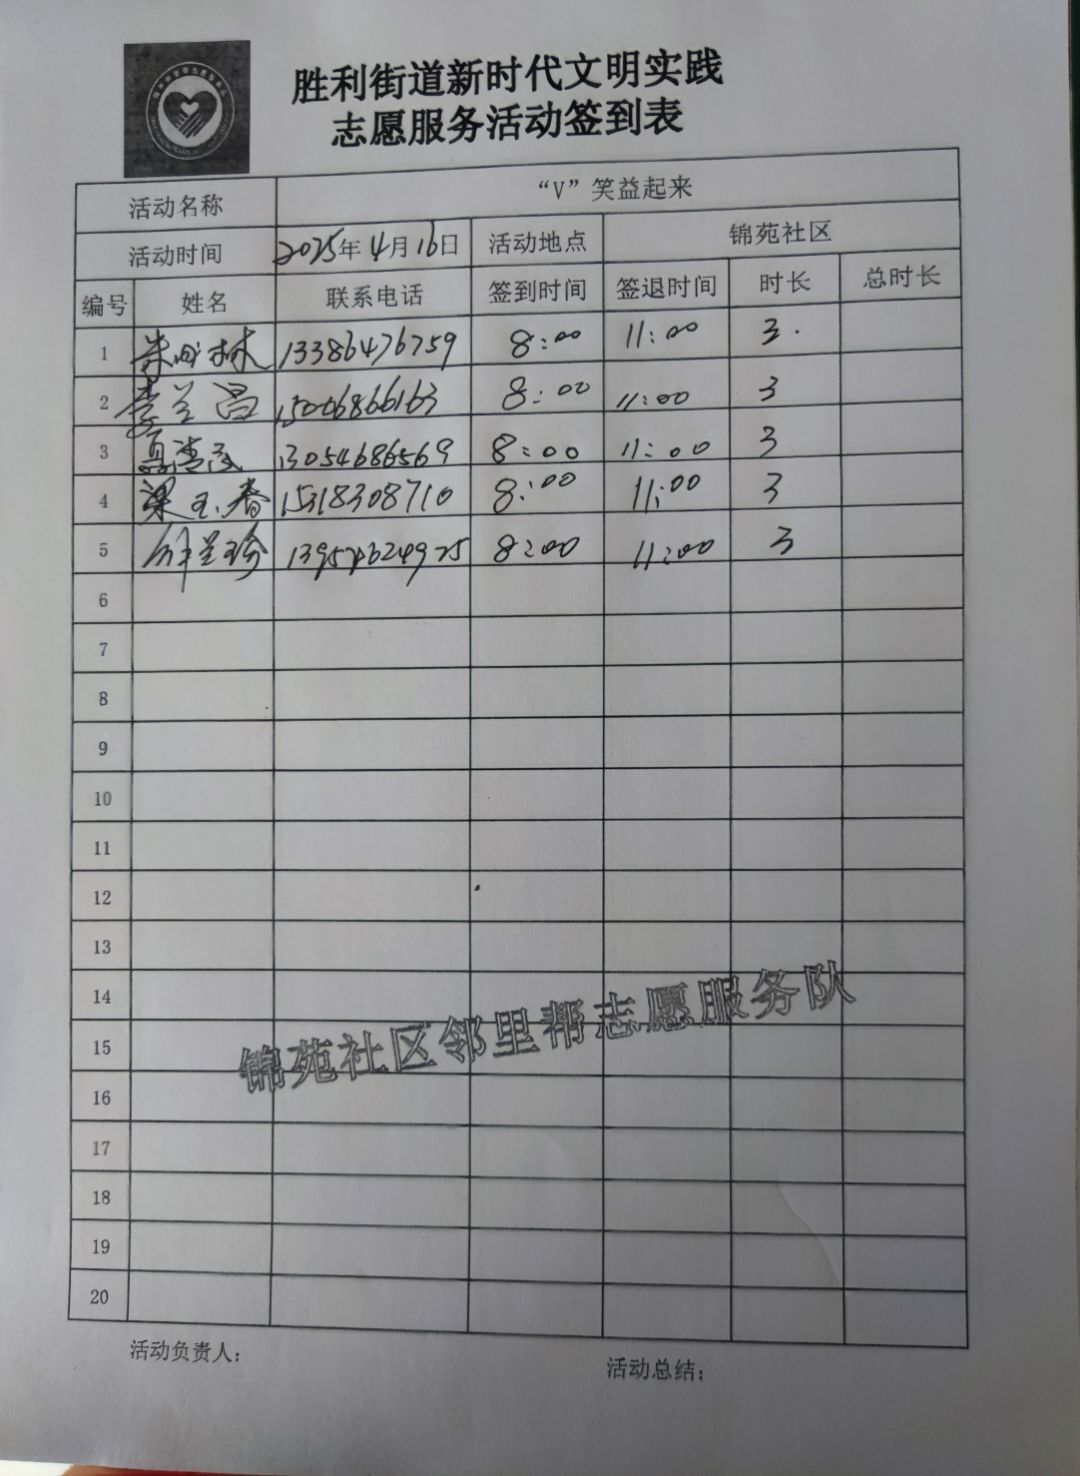 胜利街道新时代文明实践
志愿服务活动签到表
活动名称 “V”笑益起来
活动时间 2025年4月16日 活动地点 锦苑社区
编号 姓名 联系电话 签到时间 签退时间 时长 总时长
1 13386476759 8:00 11:00 3.
2 李兰昌 15006866163 8:00 11:00 3
3 13054686569 8:00 11:00 3
4 梁玉春 15318308710 8:00 11:00 3
5 8:00 11:00 3
6
7
8
9
10
11
12
13
14
锦苑社区邻里帮志愿服务队
15
16
17
18
19
20
活动负责人：
活动总结：